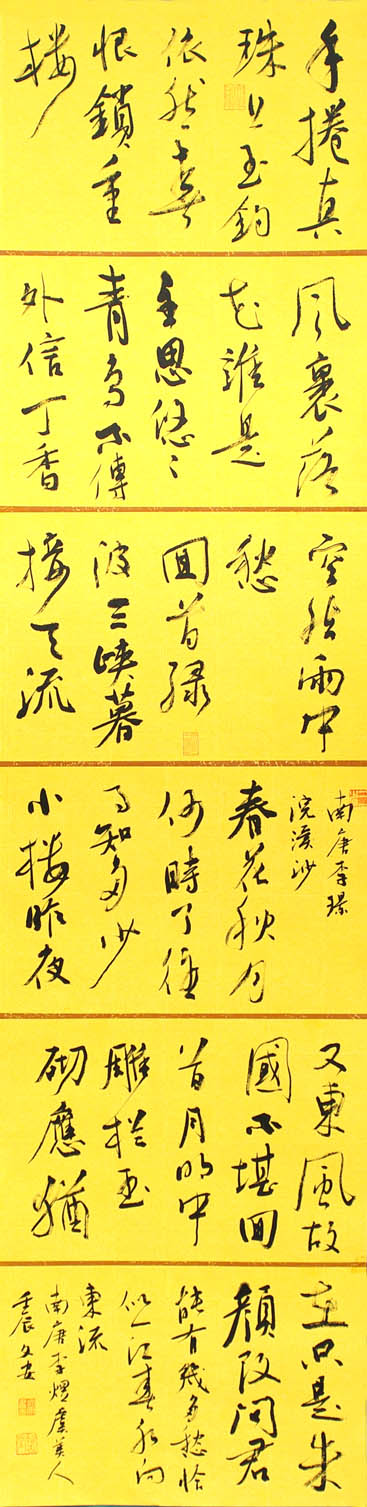 手捲真
珠上玉鈎
依然春
恨鎖重
樓
風裏落
花誰是
主思悠〻
青鳥不傳
外信丁香
空結雨中
愁
回首綠
波三峽暮
接天流
南唐李璟
浣溪沙
春花秋月
何時了往
事知多少
小樓昨夜
又東風故
國不堪回
首月明中
雕欄玉
砌應猶
在只是朱
顏改問君
能有幾多愁恰
似一江春水向
東流
南唐李煜虞美人
壬辰文安